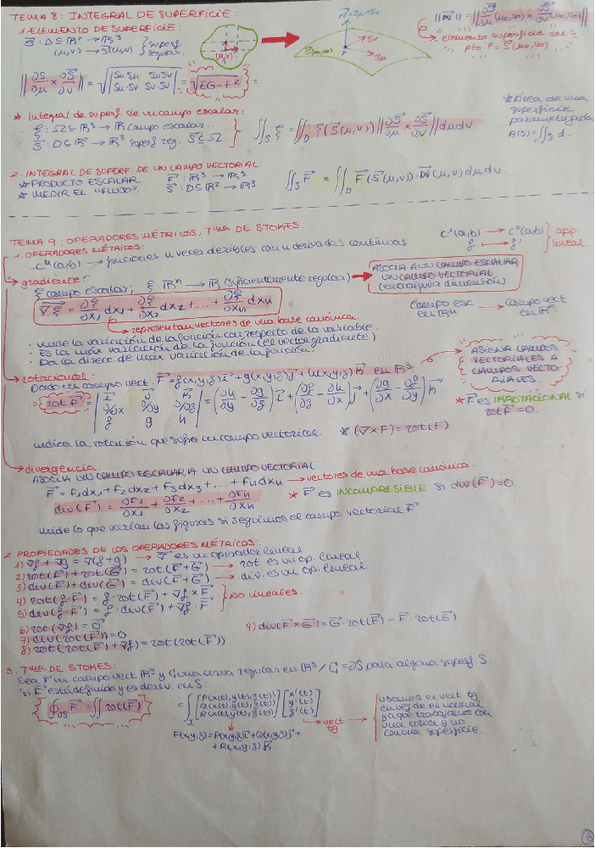 TEMA 8: INTEGRAL DE SUPERFICIE:
1. ELEMENTO DE SUPERFICIE:
S: D ⊆ ℝ² → ℝ³ } superf.
(u,v) → S(u,v) regular.
elemento superficie del
pto P = S(u₀,v₀)
‖∂S/∂u × ∂S/∂v‖ = √|SuSu SuSv / SuSv SvSv| = √(EG-F²)
* Integral de superf. de un campo escalar:
ξ: Ω ⊆ ℝ³ → ℝ campo escalar.
S: D ⊆ ℝ² → ℝ³ superf reg. S ⊆ Ω
∬_S ξ = ∬_D ξ(S(u,v)) ‖∂S/∂u × ∂S/∂v‖ du dv
* Área de una
superficie
parametrizada
A(S) = ∬_S 1.
2. INTEGRAL DE SUPERF. DE UN CAMPO VECTORIAL:
* PRODUCTO ESCALAR. F: ℝ³ → ℝ³
* MEDIR EL "FLUJO". S: D ⊆ ℝ² → ℝ³
∬_S F = ∬_D F(S(u,v)) · (u,v) du dv.
TEMA 9: OPERADORES MÉTRICOS, TMA DE STOKES:
1. OPERADORES MÉTRICOS:
Cⁿ(a,b) → funciones n veces deribles con n derivadas continuas
C¹(a,b) → C⁰(a,b) } app
f → f' lineal
gradiente:
ξ campo escalar; ξ: ℝⁿ → ℝ (suficientemente regular) →
ASOCIA A UN CAMPO ESCALAR
UN CAMPO VECTORIAL
(en cualquier dimensión)
∇ξ = ∂ξ/∂x₁ dx₁ + ∂ξ/∂x₂ dx₂ + ... + ∂ξ/∂xn dxn
campo esc → campo vect
en ℝⁿ en ℝⁿ.
representan vectores de una base canónica.
· Mide la variación de la función con respecto de la variable.
· Es la máx variación de la función (el vector gradiente)
· Da la direcc de máx variación de la función.
rotacional:
Dado el campo vect. F = f(x,y,z) i + g(x,y,z) j + h(x,y,z) k en ℝ³
ASIGNA CAMPOS
VECTORIALES A
CAMPOS VECTO-
RIALES.
rot F = |i j k / ∂/∂x ∂/∂y ∂/∂z / f g h| = (∂h/∂y - ∂g/∂z) i + (∂f/∂z - ∂h/∂x) j + (∂g/∂x - ∂f/∂y) k
* F es IRROTACIONAL si
rot F = 0.
indica la rotación que sufre un campo vectorial. * (∇×F) = rot(F)
divergencia:
ASOCIA UN CAMPO ESCALAR A UN CAMPO VECTORIAL:
F = f₁dx₁ + f₂dx₂ + f₃dx₃ + ... + fndxn → vectores de una base canónica.
div(F) = ∂f₁/∂x₁ + ∂f₂/∂x₂ + ... + ∂fn/∂xn
* F es INCOMPRESIBLE si div(F) = 0.
mide lo que varían las figuras si seguimos el campo vectorial F
2. PROPIEDADES DE LOS OPERADORES MÉTRICOS:
1) ∇f + ∇g = ∇(f+g) → ∇ es un operador lineal
2) rot(F) + rot(G) = rot(F+G) → rot es un op. lineal
3) div(F) + div(G) = div(F+G) → div. es un op. lineal
4) rot(f·F) = f·rot(F) + ∇f × F } no lineales.
5) div(f·F) = f·div(F) + ∇f · F
6) rot(∇f) = 0
7) div(rot(F)) = 0
8) rot(rot(F) + ∇f) = rot(rot(F))
9) div(F×G) = G·rot(F) - F·rot(G)
3. TMA DE STOKES:
Sea F un campo vect ℝ³ y C una curva regular en ℝ³ / C = ∂S para alguna superf S
si F está definido y es deriv. en S:
∮_∂S F = ∬ rot(F) = ∫_I [P(x(t),y(t),z(t)) / Q(x(t),y(t),z(t)) / R(x(t),y(t),z(t))] [x'(t) / y'(t) / z'(t)]
vect
tg.
F(x,y,z) = P(x,y,z) i + Q(x,y,z) j +
+ R(x,y,z) k.
usamos el vect tg.
en vez de el normal
ya que trabajamos con
una curva y no
con una superficie.
8